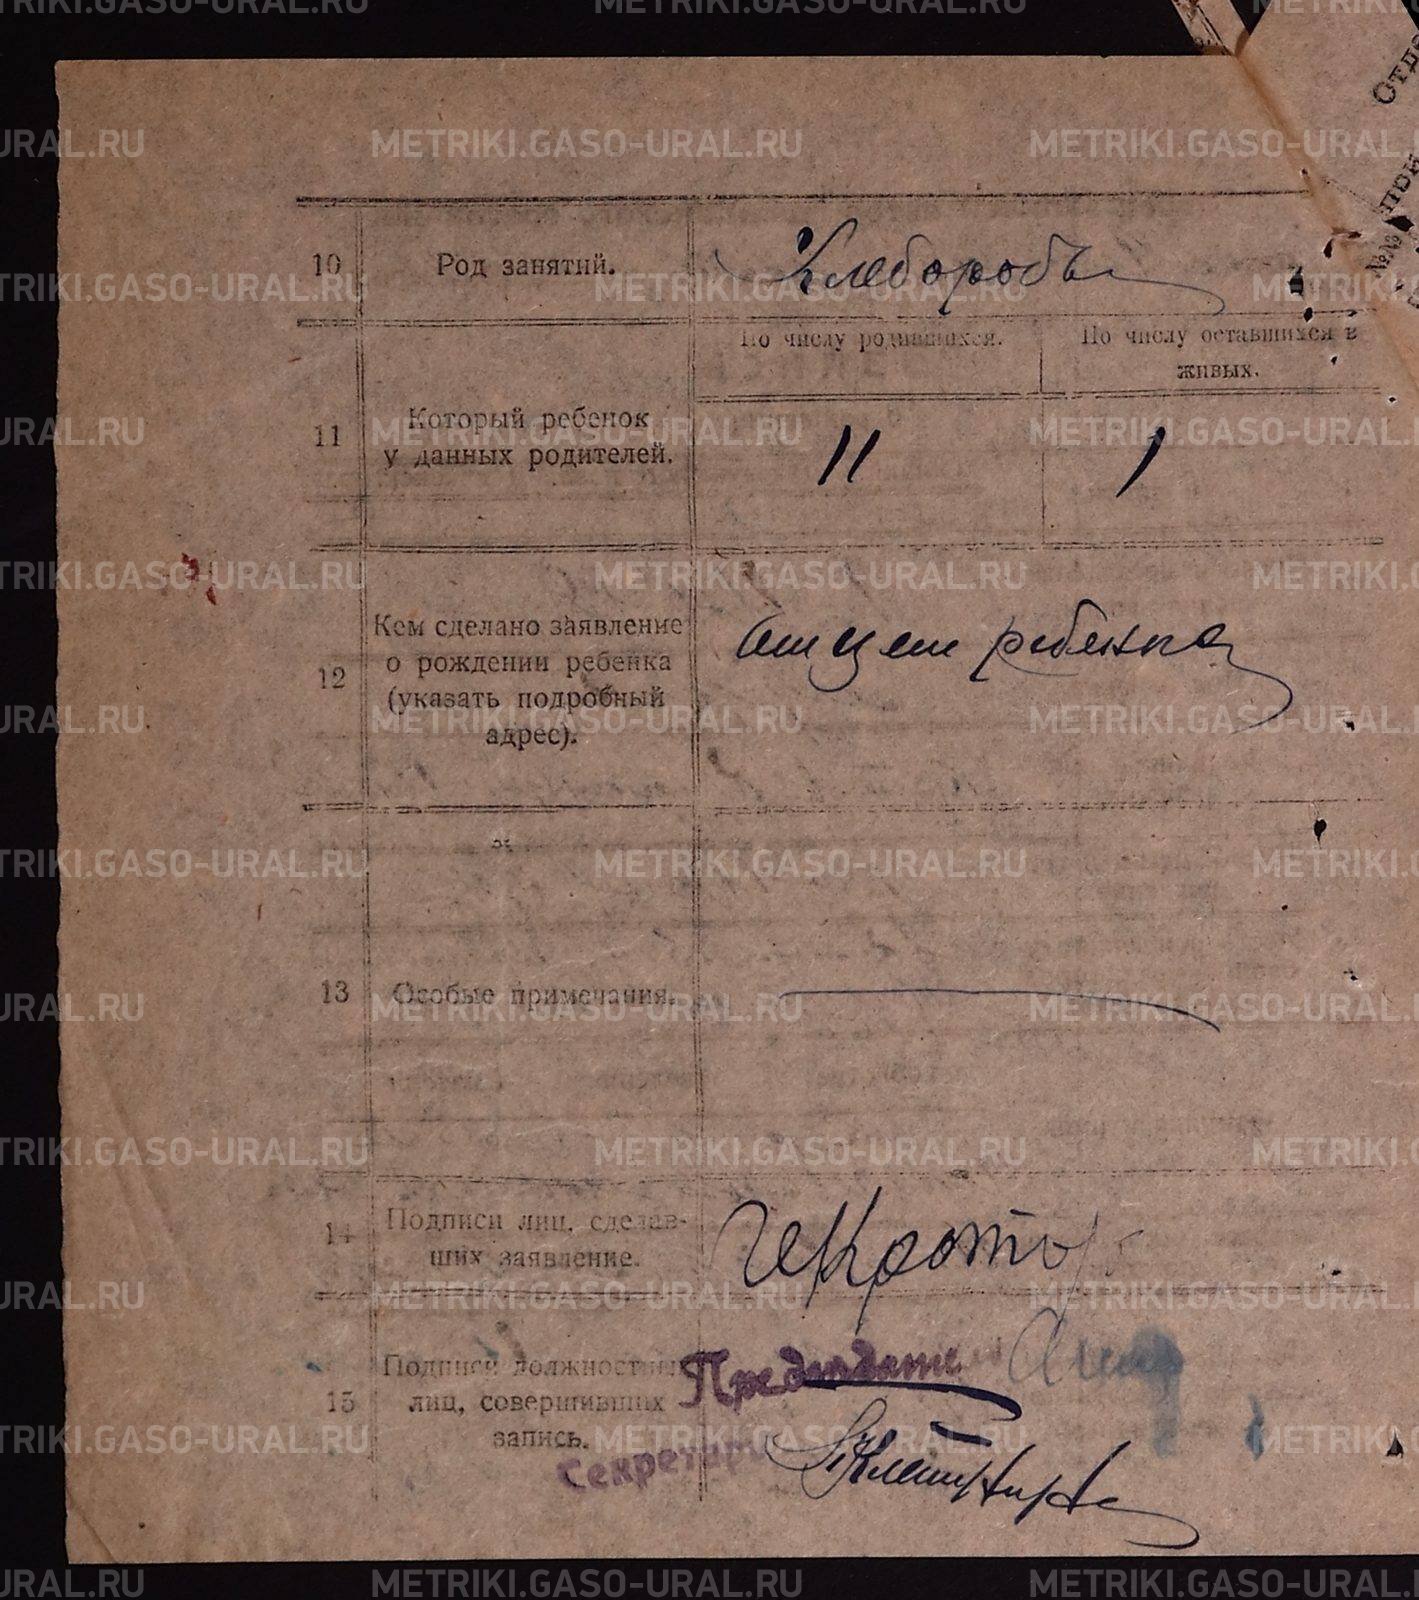 METRIKI.GASO-URAL.RU
10 Род занятий. Хлеборобъ
По числу родившихся. По числу оставшихся в
живых.
11 Который ребенок
у данных родителей. 11 1
12 Кем сделано заявление
о рождении ребенка
(указать подробный
адрес). отцем ребенка
13 Особые примечания.
14 Подписи лиц, сделав-
ших заявление.
15 Подписи должностных
лиц, совершивших
запись.
Председатель
Секретарь